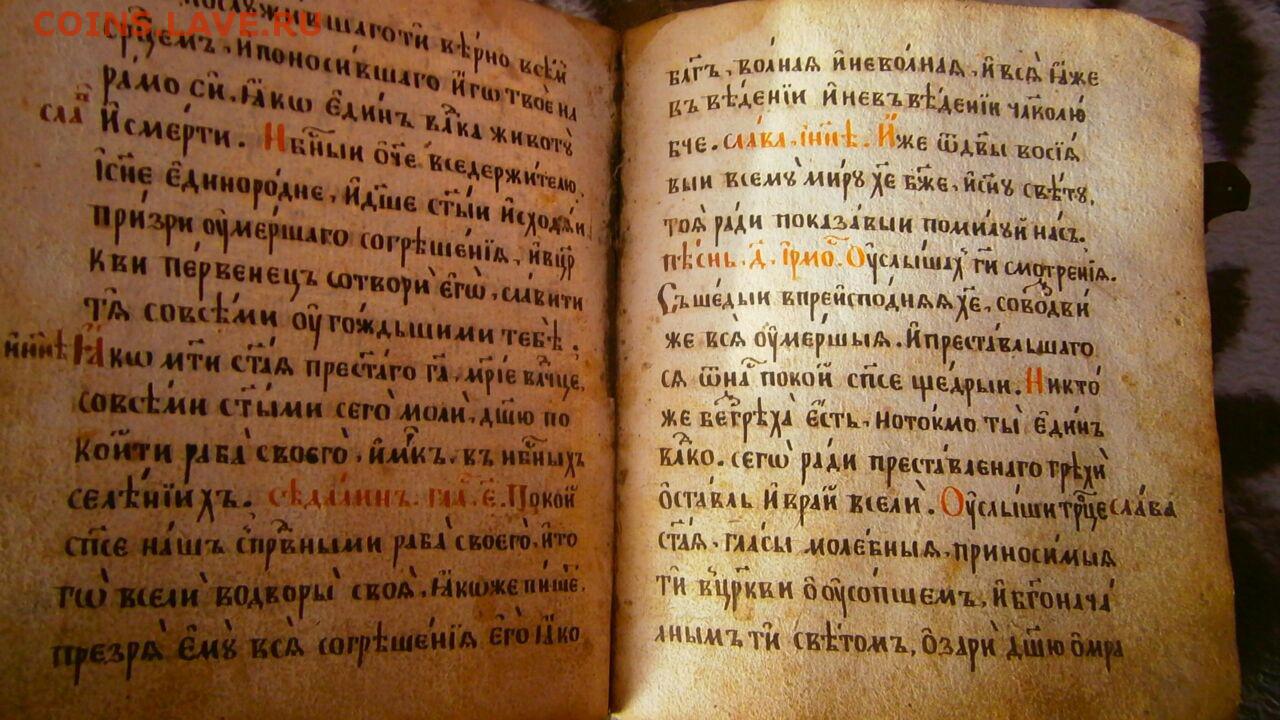 COINS.LAVE.RU
послꙋжи́вшаготи вѣ́рно всѣ́мъ
ср҃цемъ, и҆поноси́вшаго и҆́го твоѐ на
ра́мо сѝ. ꙗ҆́кѡ є҆ди́нъ влⷣка животꙋ̀
сла и҆сме́рти. Нбⷭ҇ныи ѻ҆́ч҃е вседержи́телю,
і҆сн҃е є҆диноро́дне, и҆дш҃е ст҃ы́и и҆схода́и,
при́зри ᲂу҆ме́ршаго согрѣше́нїѧ, и҆вцр҃
кви пе́рвенецъ сотворѝ є҆гѡ̀, сла́вити
тѧ̀ совсѣ́ми ᲂу҆го́ждьшими тебѣ̀.
и҆ны́нѣ Ꙗ҆́кѡ мт҃и ст҃а́ѧ прест҃а́го гⷭ҇а, мр҃і́е влⷣчце,
совсѣ́ми ст҃ы́ми сего̀ молѝ, дш҃ю по
ко́йти раба̀ своего̀, и҆́мⷬ҇къ, въ нбⷭ҇ныхъ
селе́нїихъ. Сѣда́линъ, гла́, є҃. Поко́й
сп҃се на́шъ спра́вⷣными раба̀ своего̀, и҆то
го̀ вселѝ водворы̀ своѧ̀. Ꙗ҆́коже пи́шет,
презрѧ̀ є҆мꙋ̀ всѧ̀ согрѣше́нїѧ є҆го̀ ꙗ҆́ко
бл҃гъ, во́лнаѧ и҆нево́лнаѧ, и҆всѧ̀ ꙗ҆́же
въвѣ́денїи и҆невъвѣ́денїи чл҃колю́
бче. сла́ва, и҆нн҃ѣ. И҆́же ѿдв҃ы восїѧ́
выи всемꙋ̀ ми́рꙋ хⷭ҇е бж҃е, и҆́снꙋ свѣ́тꙋ,
тоѧ̀ ра́ди показа́выи поми́лꙋй на́съ.
пѣ́снь, д҃, і҆рмо́с, Оу҆слы́шахъ гⷭ҇и смотре́нїѧ.
Съше́дыи впреи҆спо́днѧѧ хⷭ҇е, совоздви́
же всѧ̀ ᲂу҆ме́ршыѧ. И҆преста́вльшаго
сѧ ѿна́съ поко́й сп҃се ще́дрыи. Никто́
же безгрѣха̀ є҆́сть, ното́кмо ты̀ є҆ди́нъ
влⷣко. сегѡ̀ ра́ди преста́вленаго грѣхѝ
ѡ҆ста́вль и҆вра́й вселѝ. Оу҆слы́ши трⷪ҇це сла́ва
ст҃а́ѧ, гла́сы моле́бныѧ, приноси́мыѧ
тѝ вцр҃кви ѡ҆ᲂу҆со́пшемъ, и҆бг҃онача́
лнымъ тѝ свѣ́томъ, ѡ҆зарѝ дш҃ю ѡ҆мра